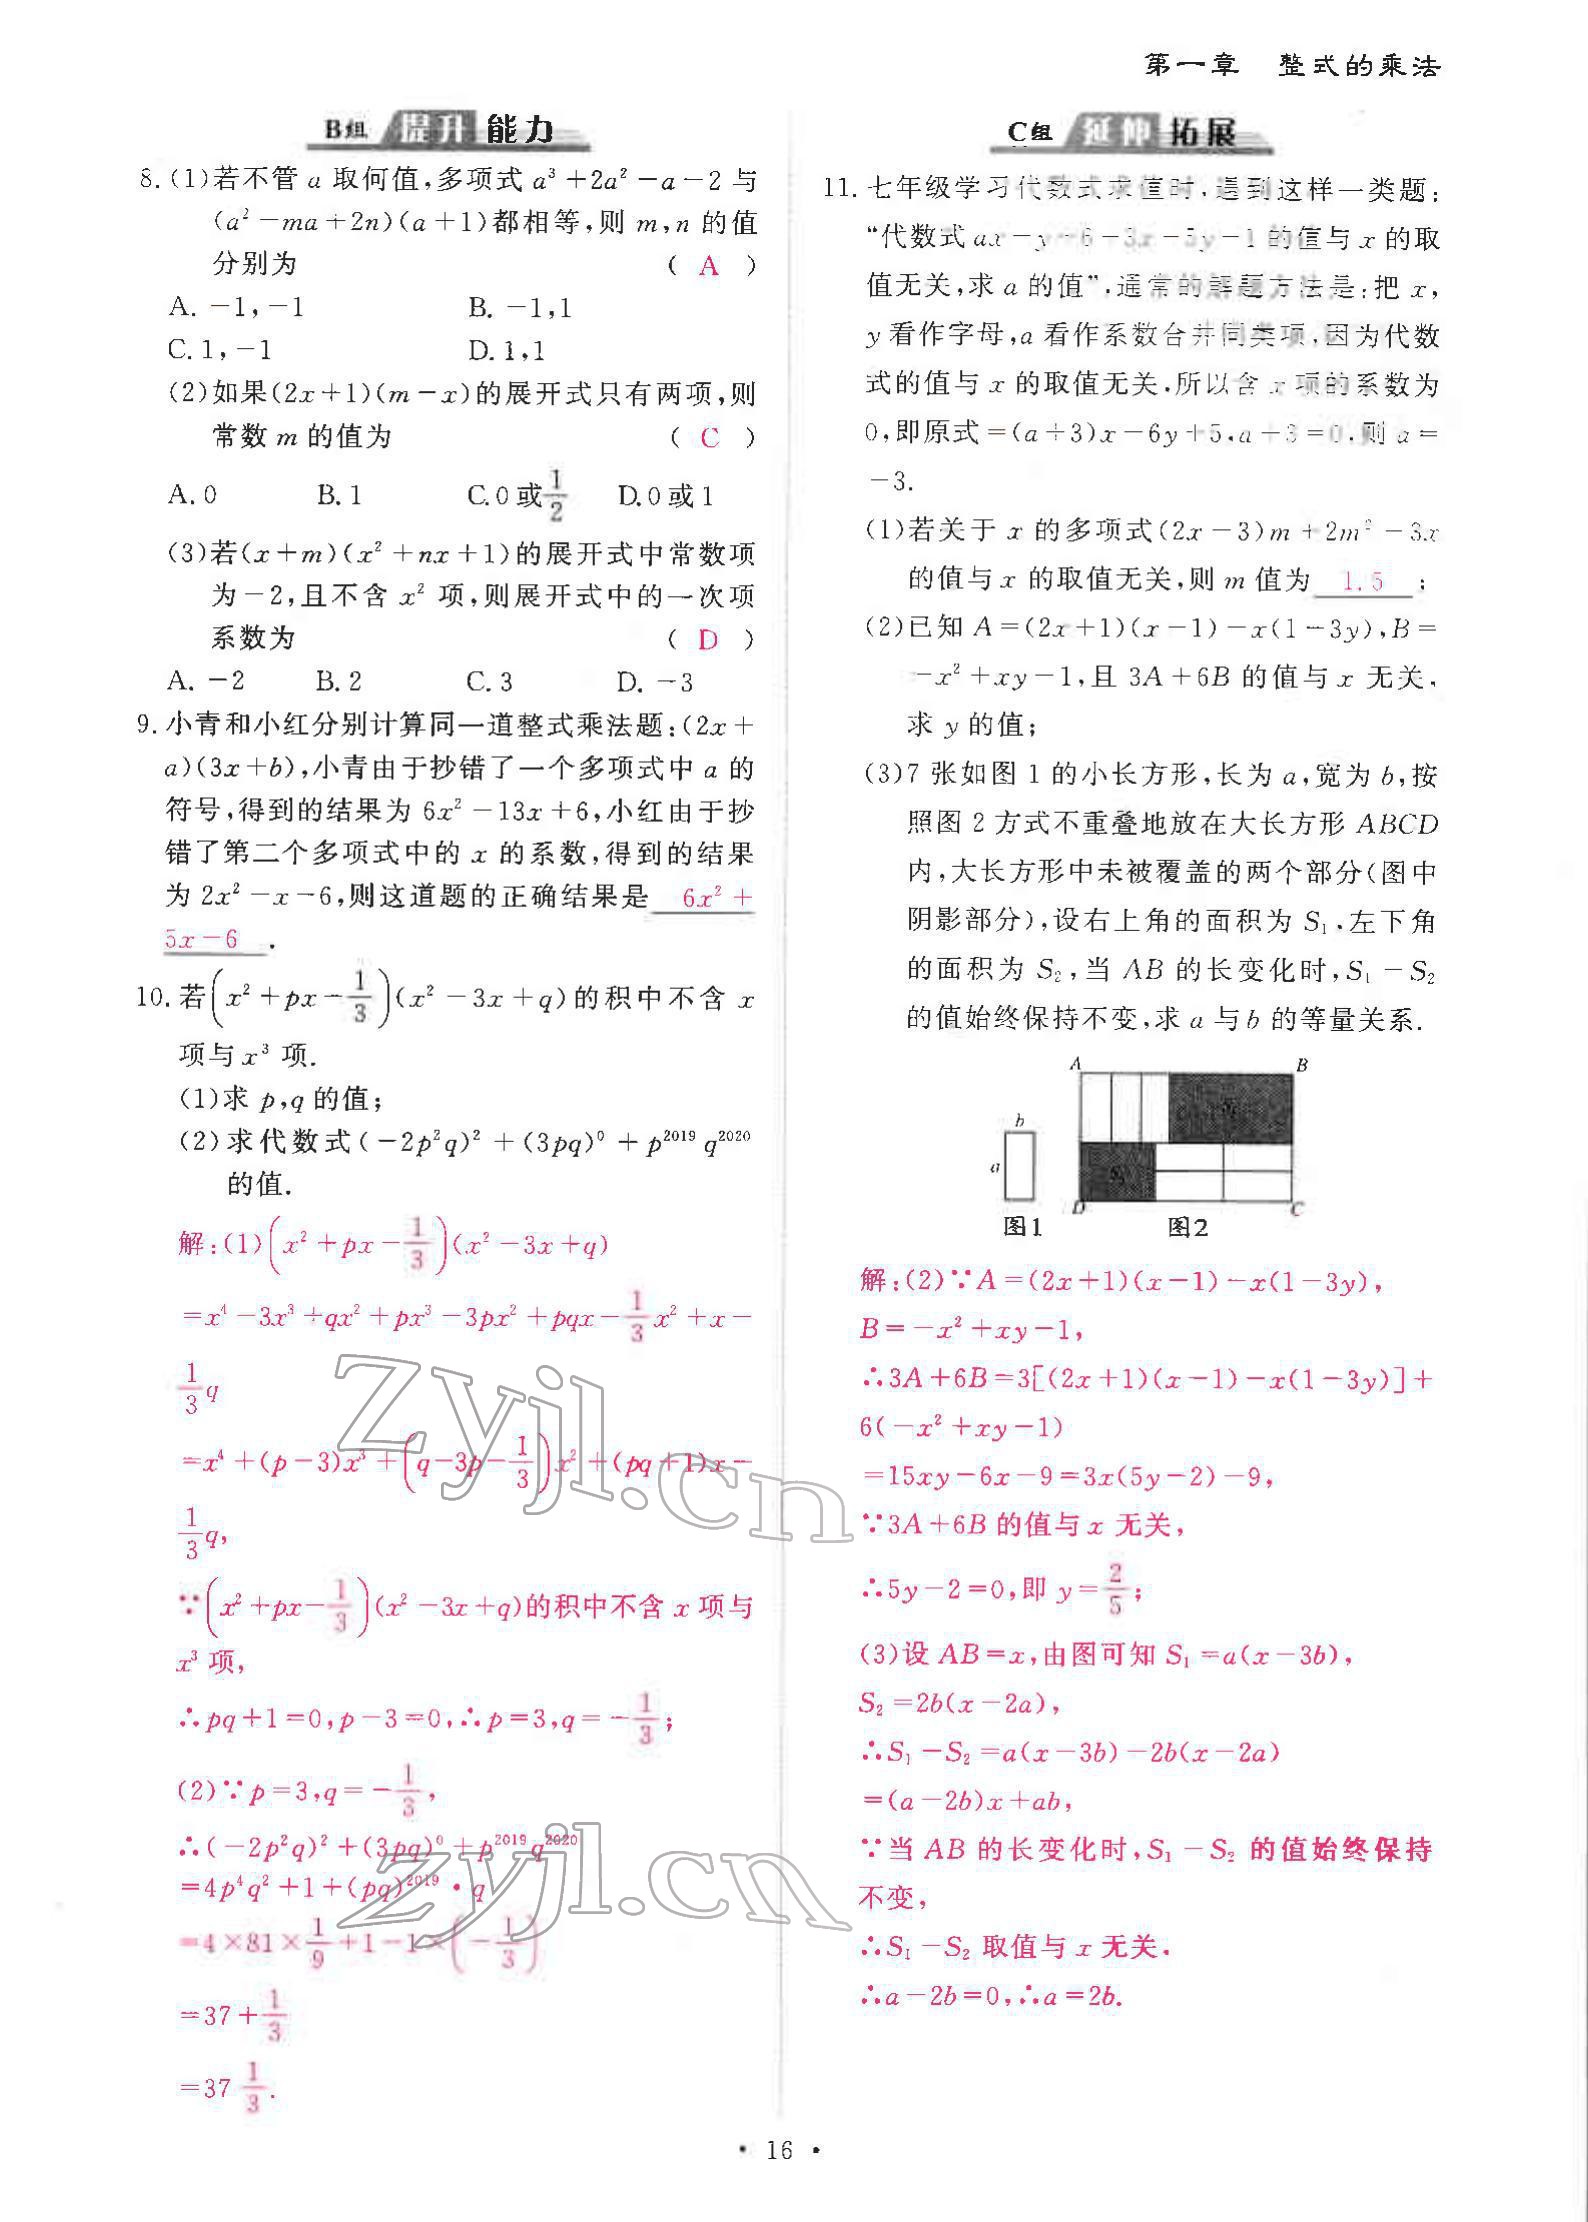 第一章 整式的乘法
B组 提升 能力
8. (1)若不管 a 取何值,多项式 a³+2a²-a-2 与
(a²-ma+2n)(a+1)都相等,则 m,n 的值
分别为 ( A )
A. -1,-1 B. -1,1
C. 1,-1 D. 1,1
(2)如果(2x+1)(m-x)的展开式只有两项,则
常数 m 的值为 ( C )
A. 0 B. 1 C. 0 或 1/2 D. 0 或 1
(3)若(x+m)(x²+nx+1)的展开式中常数项
为-2,且不含 x² 项,则展开式中的一次项
系数为 ( D )
A. -2 B. 2 C. 3 D. -3
9. 小青和小红分别计算同一道整式乘法题:(2x+
a)(3x+b),小青由于抄错了一个多项式中 a 的
符号,得到的结果为 6x²-13x+6,小红由于抄
错了第二个多项式中的 x 的系数,得到的结果
为 2x²-x-6,则这道题的正确结果是 6x²+
5x-6 .
10. 若(x²+px-1/3)(x²-3x+q)的积中不含 x
项与 x³ 项.
(1)求 p,q 的值;
(2)求代数式(-2p²q)²+(3pq)⁰+p²⁰¹⁹q²⁰²⁰
的值.
解:(1)(x²+px-1/3)(x²-3x+q)
=x⁴-3x³+qx²+px³-3px²+pqx-1/3x²+x-
1/3q
=x⁴+(p-3)x³+(q-3p-1/3)x²+(pq+1)x-
1/3q,
∵(x²+px-1/3)(x²-3x+q)的积中不含 x 项与
x³ 项,
∴pq+1=0,p-3=0,∴p=3,q=-1/3;
(2)∵p=3,q=-1/3,
∴(-2p²q)²+(3pq)⁰+p²⁰¹⁹q²⁰²⁰
=4p⁴q²+1+(pq)²⁰¹⁹·q
=4×81×1/9+1-1×(-1/3)
=37+1/3
=37 1/3.
C组 延伸 拓展
11. 七年级学习代数式求值时,遇到这样一类题:
“代数式 ax-y+6+3x-5y-1 的值与 x 的取
值无关,求 a 的值”,通常的解题方法是:把 x,
y 看作字母,a 看作系数合并同类项,因为代数
式的值与 x 的取值无关,所以含 x 项的系数为
0,即原式=(a+3)x-6y+5,a+3=0,则 a=
-3.
(1)若关于 x 的多项式(2x-3)m+2m²-3x
的值与 x 的取值无关,则 m 值为 1.5 ;
(2)已知 A=(2x+1)(x-1)-x(1-3y),B=
-x²+xy-1,且 3A+6B 的值与 x 无关,
求 y 的值;
(3)7 张如图 1 的小长方形,长为 a,宽为 b,按
照图 2 方式不重叠地放在大长方形 ABCD
内,大长方形中未被覆盖的两个部分(图中
阴影部分),设右上角的面积为 S₁,左下角
的面积为 S₂,当 AB 的长变化时,S₁-S₂
的值始终保持不变,求 a 与 b 的等量关系.
A B
b
a
D C
图1 图2
解:(2)∵A=(2x+1)(x-1)-x(1-3y),
B=-x²+xy-1,
∴3A+6B=3[(2x+1)(x-1)-x(1-3y)]+
6(-x²+xy-1)
=15xy-6x-9=3x(5y-2)-9,
∵3A+6B 的值与 x 无关,
∴5y-2=0,即 y=2/5;
(3)设 AB=x,由图可知 S₁=a(x-3b),
S₂=2b(x-2a),
∴S₁-S₂=a(x-3b)-2b(x-2a)
=(a-2b)x+ab,
∵当 AB 的长变化时,S₁-S₂ 的值始终保持
不变,
∴S₁-S₂ 取值与 x 无关.
∴a-2b=0,∴a=2b.
zyjl.cn
zyjl.cn
• 16 •